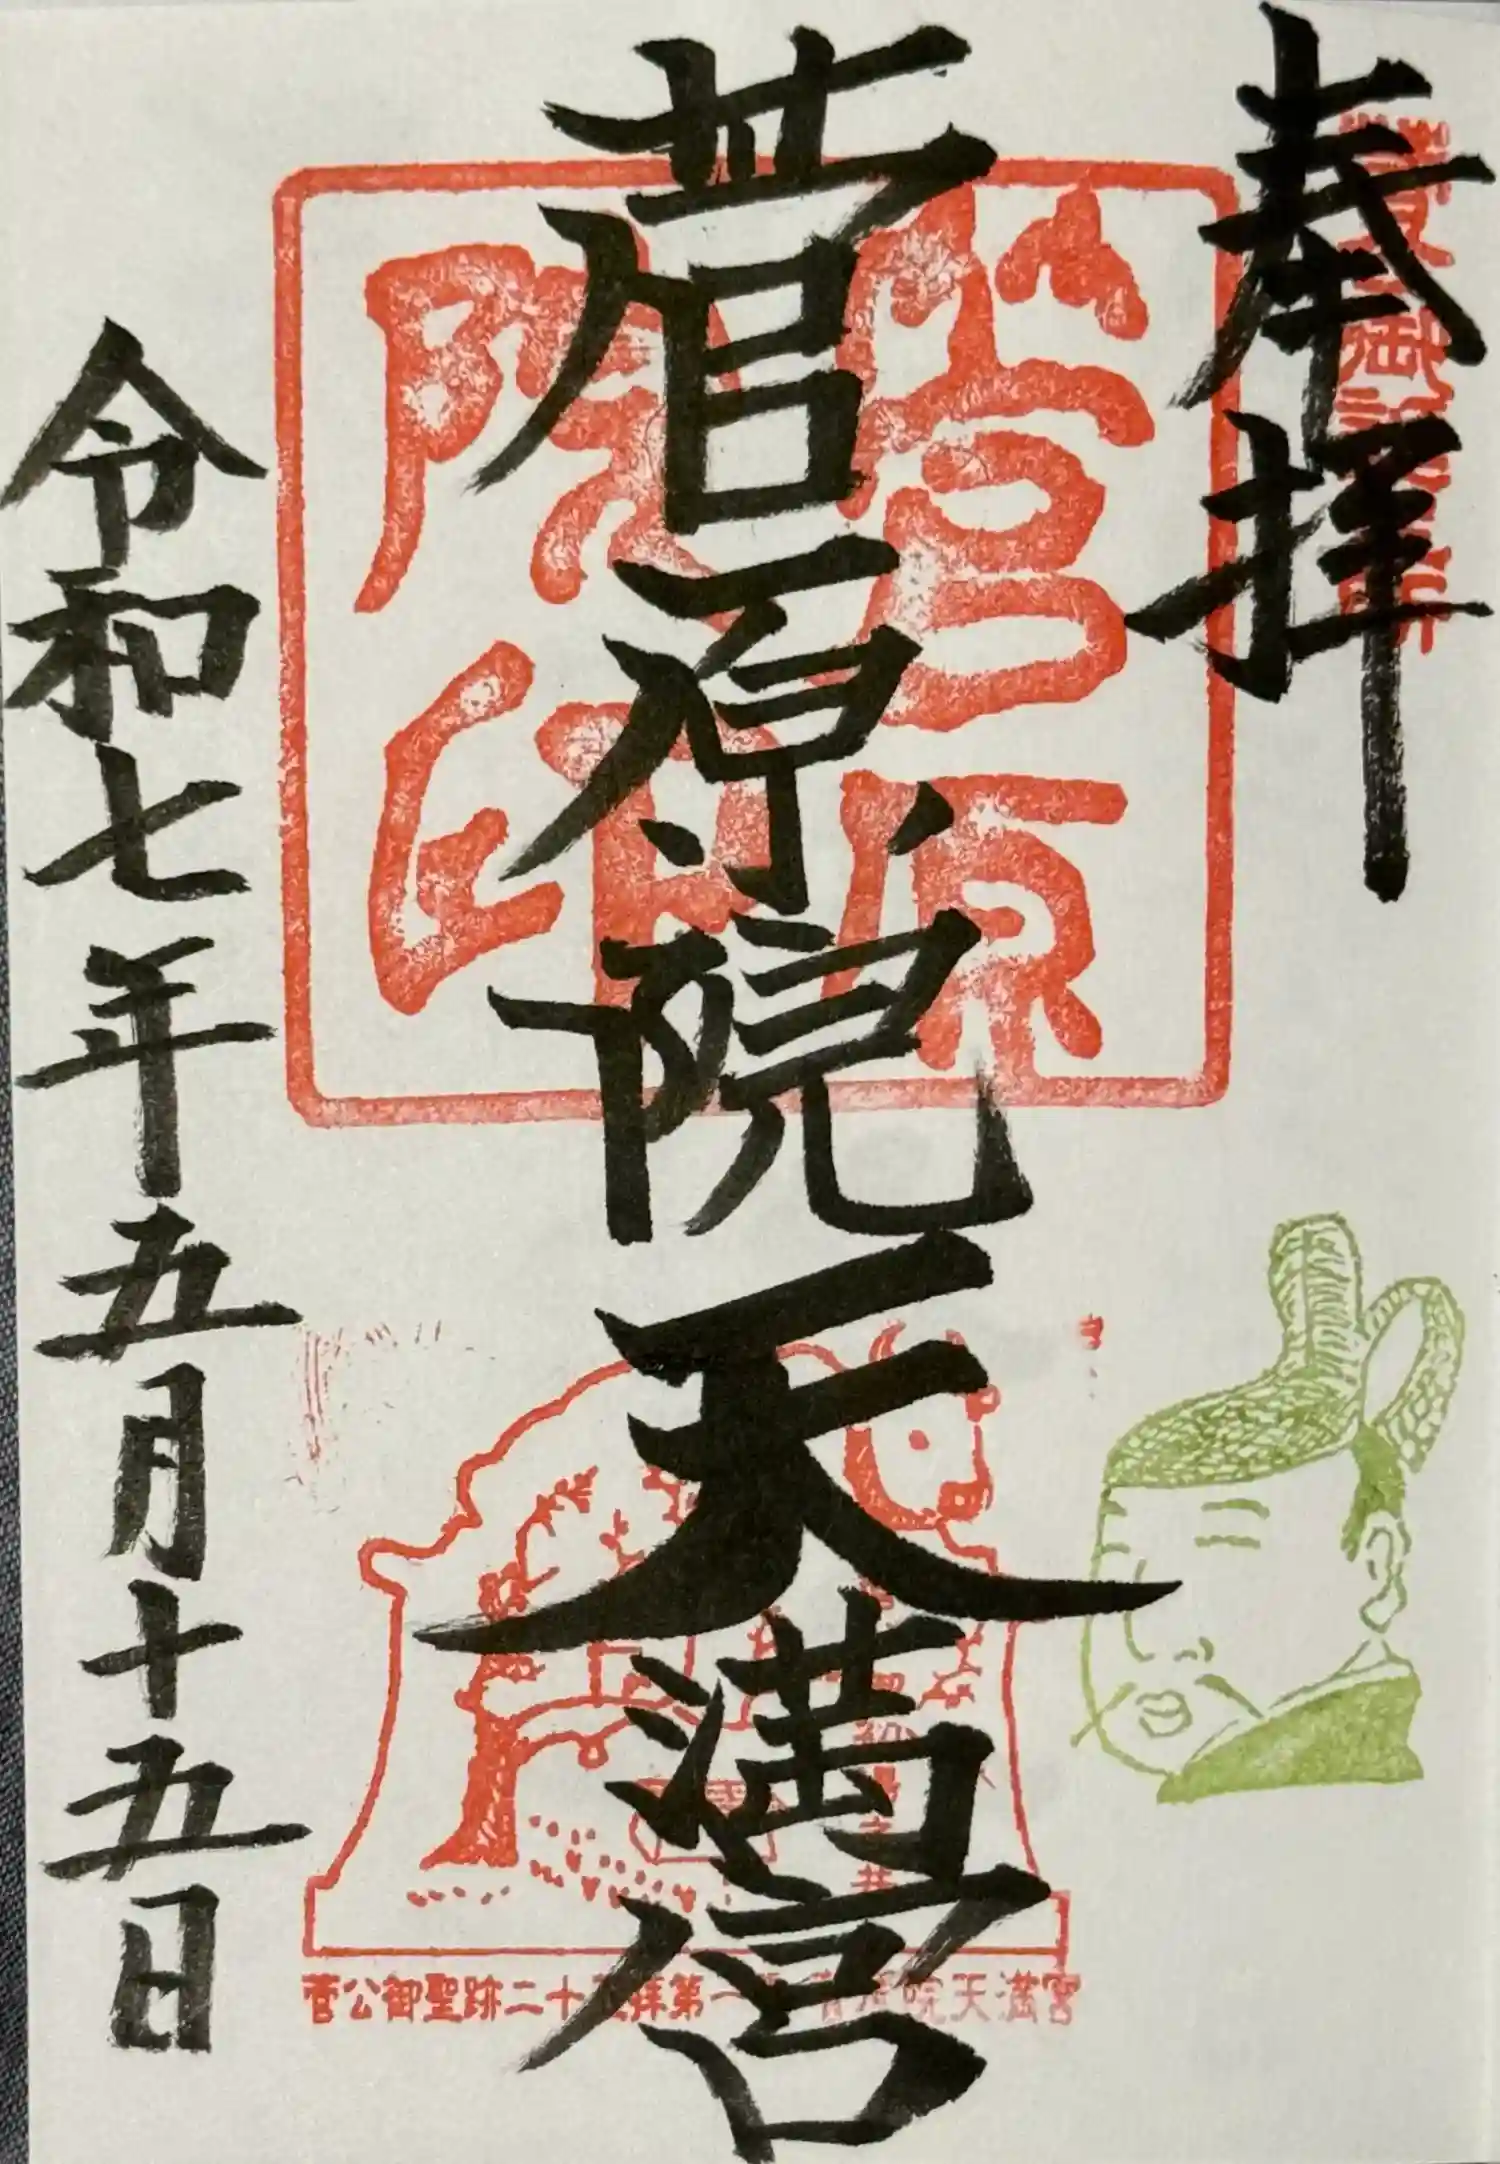 奉拝
菅原院天満宮
令和七年五月十五日
菅原
院印
菅公御聖跡二十五拝第一番菅原院天満宮